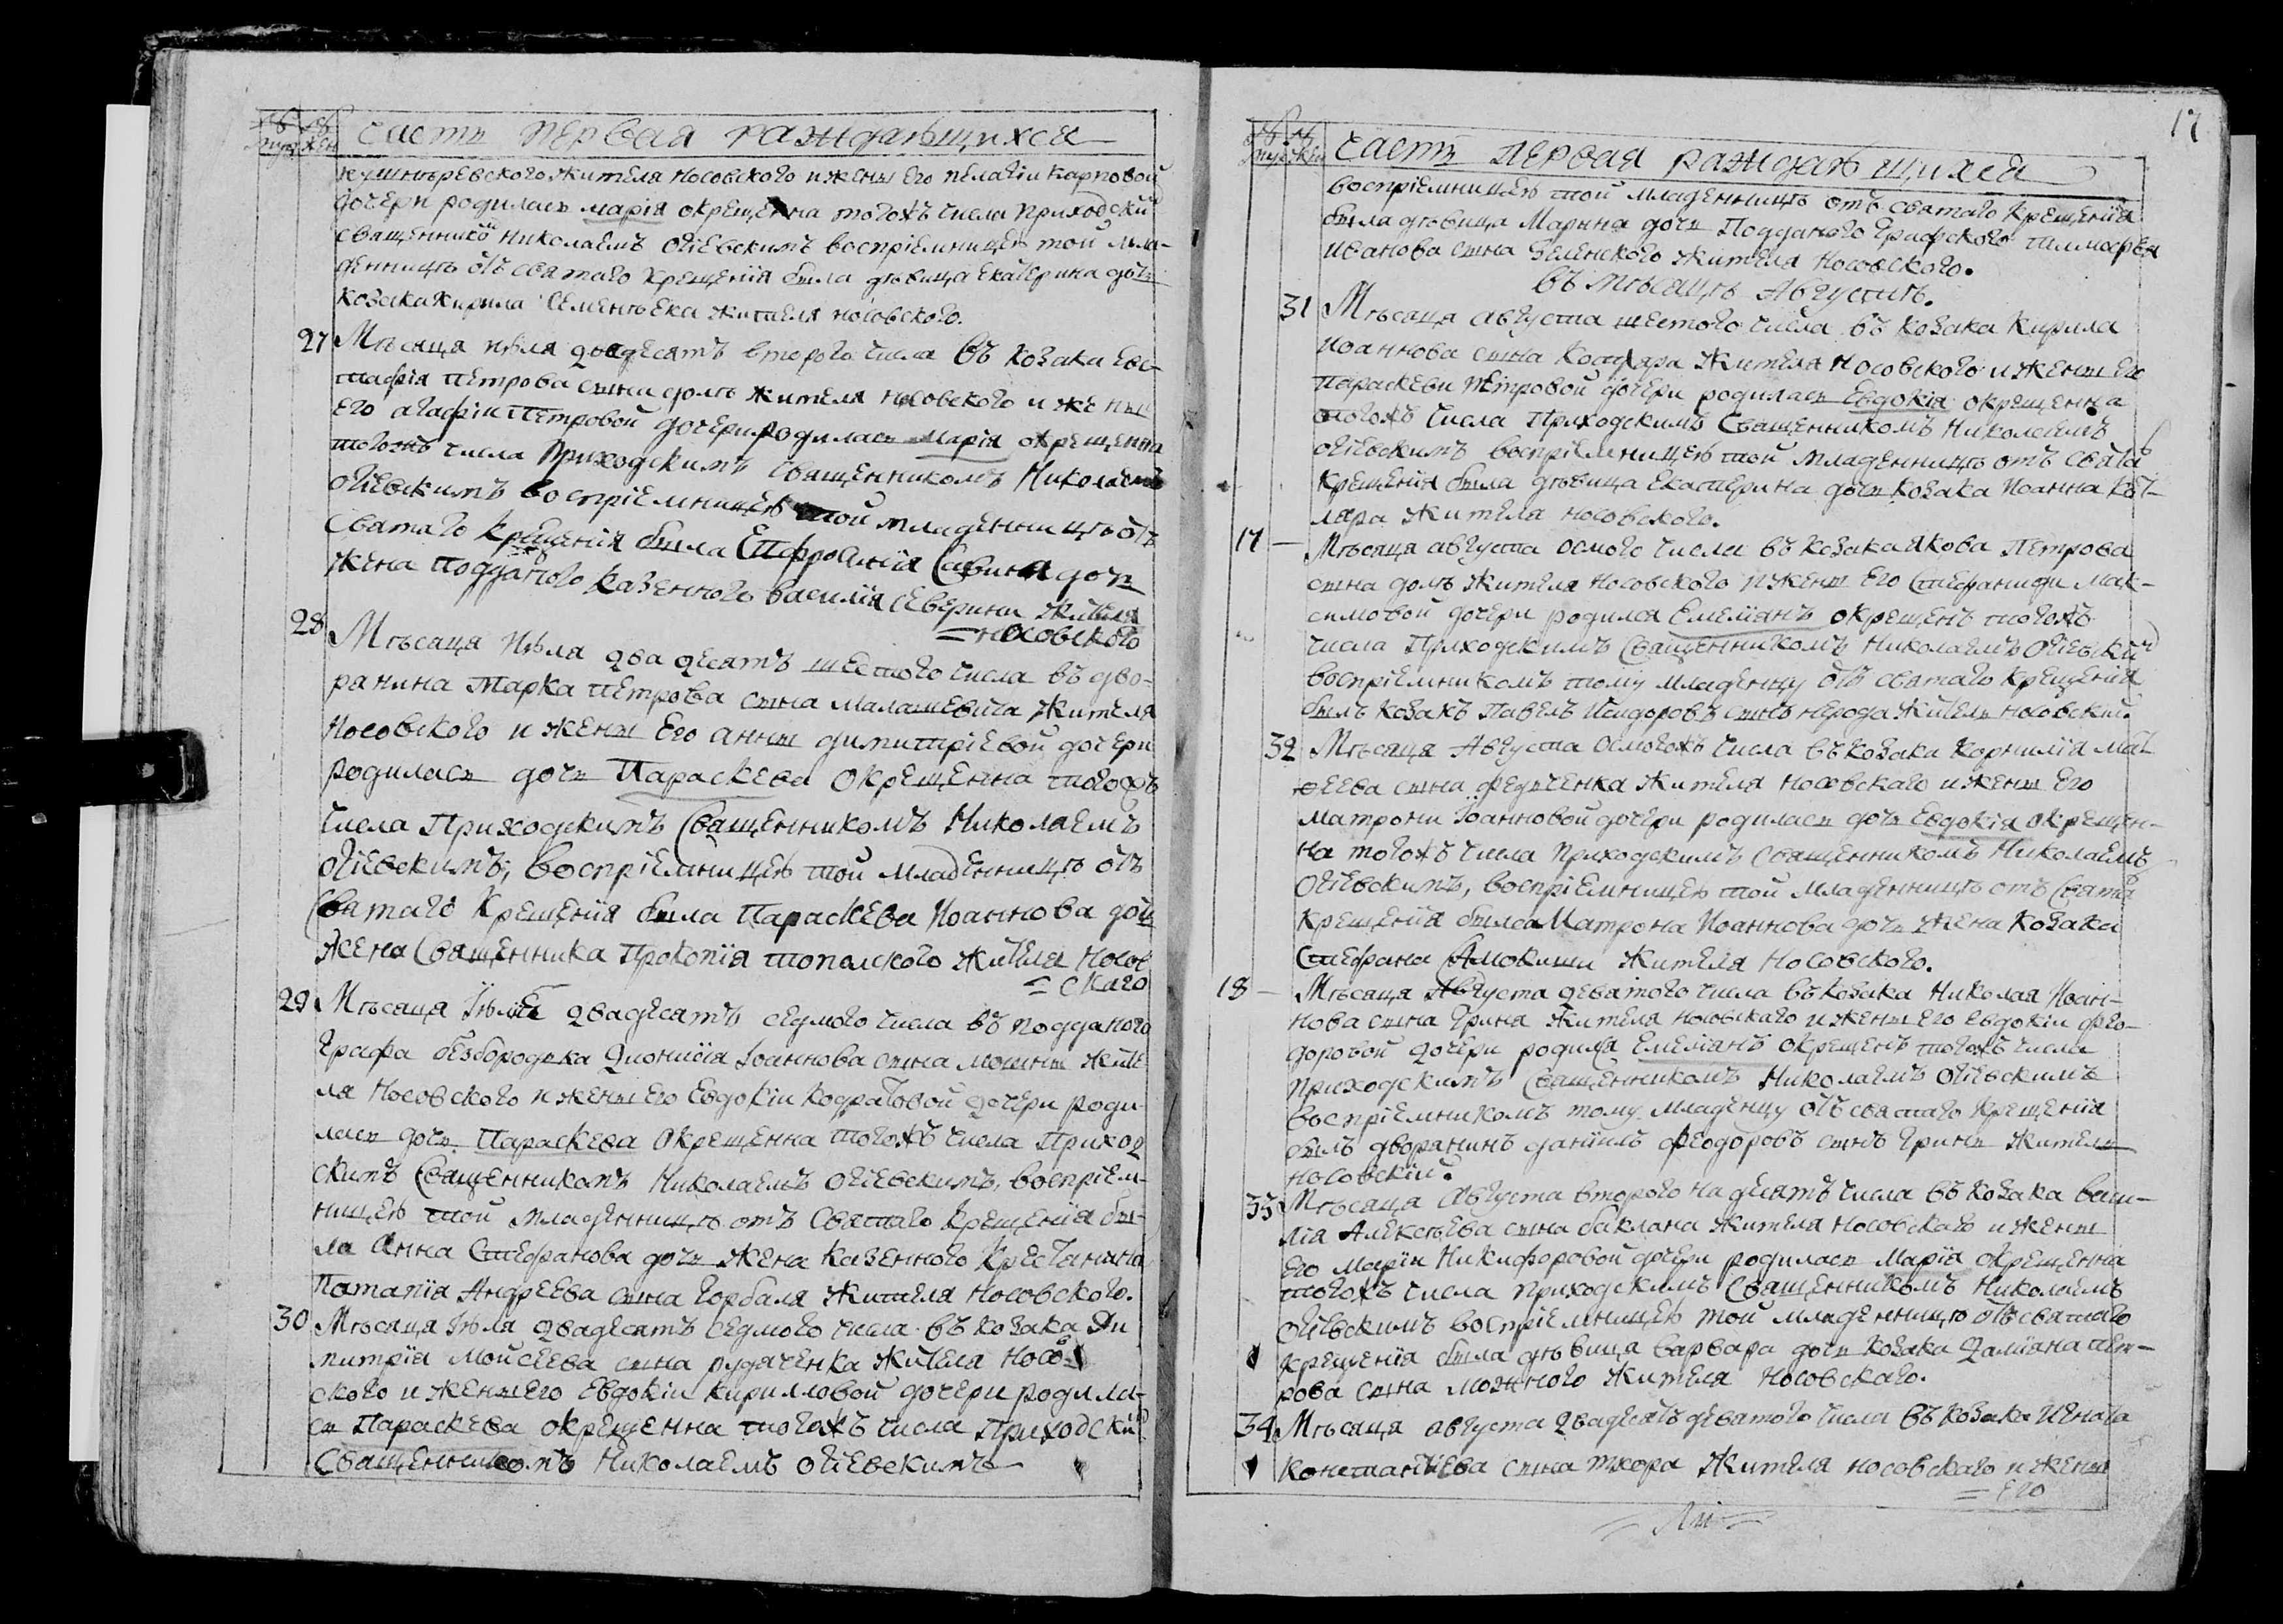 часть первая раждающихся
кушнѣревского жителя Носовского и жены его пелагіи карповой
дочери родилась марія окрещенна тогожъ числа приходскимъ
священникомъ Николаемъ воспріемницею той мла-
денницѣ отъ святаго крещенія была дѣвица екатерина дочь
козака кирила жителя носовского.
27 Мѣсяца іюля двадесять второго числа въ козака евс-
тафія петрова сына доля жителя носовского и жены
его агафіи петровой дочери родилась марія окрещенна
тогожъ числа приходскимъ священникомъ Николаемъ
воспріемницею той младенницѣ отъ
святаго крещенія была Евфросинія Савина дочь
жена подданого казенного василія северина жителя
= носовского
28 Мѣсяца іюля двадесять шестого числа въ дво-
ранина Марка петрова сына малашевича жителя
Носовского и жены его анны димитріевой дочери
родилась дочь Параскева окрещенна тогожъ
числа Приходскимъ Священникомъ Николаемъ
воспріемницею той младенницѣ отъ
Святаго крещенія была Параскева Иоаннова дочь
жена Священника Прокопія жителя Носов
= скаго
29 Мѣсяца Іюля двадесять седмого числа въ подданого
графа безбородька Дионисія Іоаннова сына жите-
ля Носовского и жены его Евдокіи кодратовой дочери роди-
лась дочь Параскева окрещенна тогожъ числа приход
скимъ Священникомъ Николаемъ воспріем-
ницею той младенницѣ отъ Святаго Крещенія бы-
ла Анна Стефанова дочь жена казенного крестьянина
Потапія Андреева сына горбаля жителя Носовского.
30 Мѣсяца Іюля двадесять седмого числа въ козака Ди
митрія Мойсеева сына рудаченка жителя Носов
ского и жены его Евдокіи кириловой дочери родила-
сь Параскева окрещенна тогожъ числа Приходскимъ
Священникомъ Николаемъ
17
часть первая раждающихся
воспріемницею той младенницѣ отъ святаго крещенія
была дѣвица Марина дочь Подданого графского
иванова сына зеленского жителя носовского.
въ мѣсяцѣ Августѣ.
31 Мѣсяца августа шестого числа въ козака кирила
иоаннова сына Котляра жителя Носовского и жены его
параскеви петровой дочери родилась Евдокія окрещенна
тогожъ числа Приходскимъ Священникомъ Николаемъ
воспріемницею той младенницѣ отъ святаго
крещенія была дѣвица екатерина дочь козака Иоанна кот-
ляра жителя носовского.
17 — Мѣсяца августа осмого числа въ козака якова петрова
сына доля жителя носовского и жены его Стефаниди мак-
симовой дочери родился Емеліянъ окрещенъ тогожъ
числа приходскимъ священникомъ Николаемъ
воспріемникомъ тому младенцу отъ святаго крещенія
былъ козакъ павелъ Исидоровъ сынъ нерода житель носовскій.
32 Мѣсяца августа осмогожъ числа въ козака корнилія мат
ѳеева сына федченка жителя носовскаго и жены его
матрони Іоанновой дочери родилась дочь Евдокія окрещен-
на тогожъ числа приходскимъ священникомъ Николаемъ
воспріемницею той младенницѣ отъ святаго
крещенія была Матрона Иоаннова дочь жена козака
Стефана жителя Носовского.
18 — Мѣсяца августа деватого числа въ козака Николая Иоан-
нова сына Гриня жителя носовскаго и жены его евдокіи фео-
доровой дочери родился Емеліянъ окрещенъ тогожъ числа
приходскимъ Священникомъ Николаемъ
воспріемникомъ тому младенцу отъ святаго крещенія
былъ дворанинъ даніилъ феодоровъ сынъ гринь житель
носовскій.
33 Мѣсяца августа второго на десять числа въ козака васи-
лія Алексѣева сына баклана жителя носовскаго и жены
его маріи Никифоровой дочери родилась Марія окрещенна
тогожъ числа приходскимъ Священникомъ Николаемъ
воспріемницею той младенницѣ отъ святаго
крещенія была дѣвица варвара дочь козака Даміана пет-
рова сына можного жителя Носовскаго.
34 Мѣсяца августа двадесять деватого числа въ козака Игната
константіева сына тхора жителя носовскаго и жены
= его